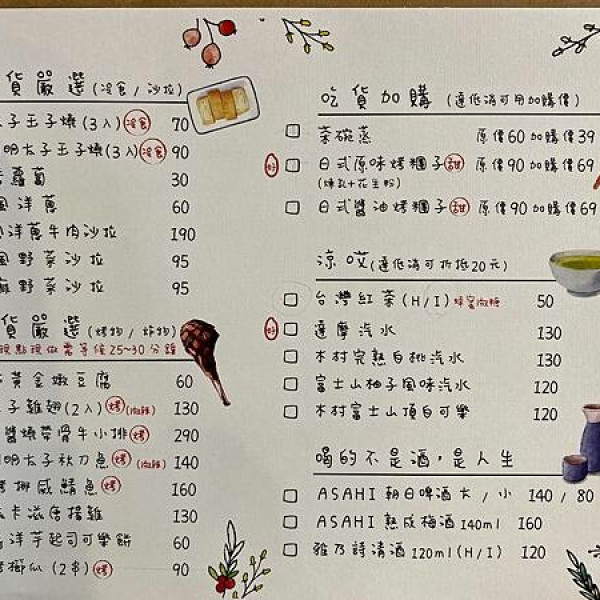 貨嚴選 (冷食 / 沙拉)
子玉子燒 (3入) 冷食 70
明太子玉子燒 (3入) 冷食 90
蘿蔔 30
風洋蔥 60
洋蔥牛肉沙拉 190
風野菜沙拉 95
麻野菜沙拉 95
貨嚴選 (烤物 / 炸物)
現點現做需等候25~30分鐘
黃金嫩豆腐 60
子雞翅 (2入) 烤 (微辣) 130
醬燒帶骨牛小排 烤 290
明太子秋刀魚 烤 (微辣) 140
烤挪威鯖魚 烤 160
卡滋唐揚雞 130
洋芋起司可樂餅 60
烤櫛瓜 (2串) 烤 90
吃貨加購 (達低消可用加購價)
茶碗蒸 原價60 加購39
好 日式原味烤糰子 甜 原價90 加購69
(煉乳+花生粉)
日式醬油烤糰子 甜 原價90 加購69
涼哎 (達低消可折抵20元)
台灣紅茶 (H/I) 蜂蜜微糖 50
好 達摩汽水 130
木村完熟白桃汽水 130
富士山柚子風味汽水 120
木村富士山頂白可樂 120
喝的不是酒,是人生
ASAHI 朝日啤酒 大 / 小 140 / 80
ASAHI 熟成梅酒 140ml 160
雅乃詩清酒 120ml (H/I) 120